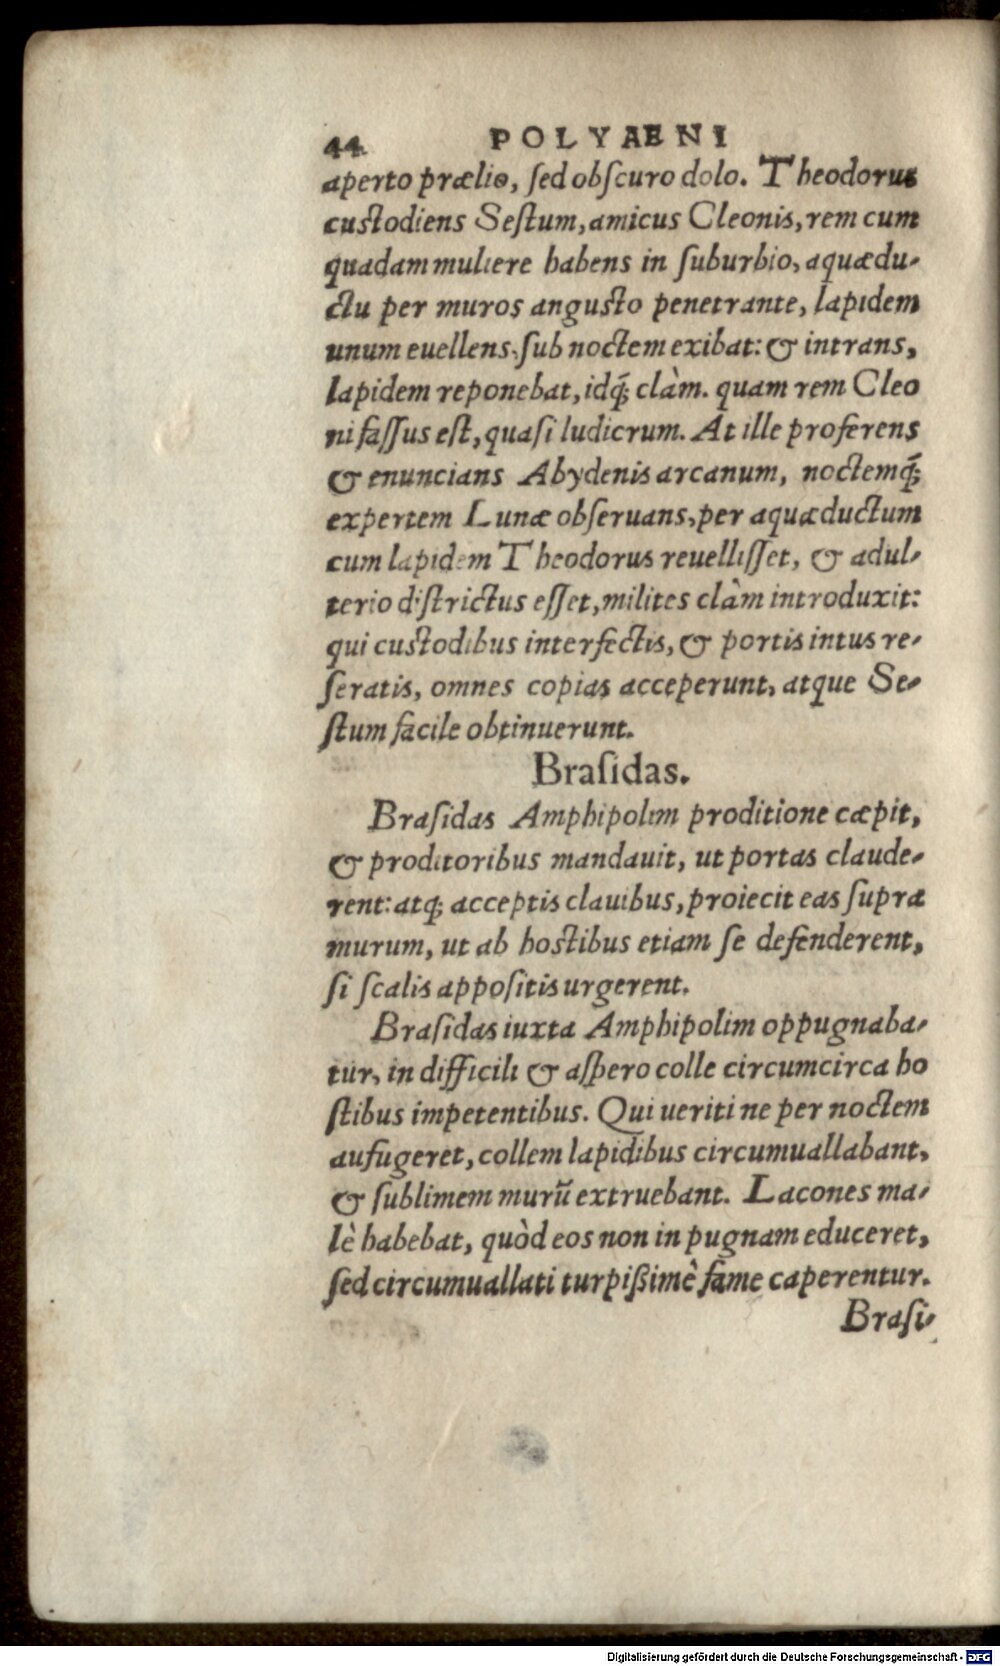 44 POLYAENI
aperto prælio, ſed obſcuro dolo. Theodorus
cuſtodiens Seſtum, amicus Cleonis, rem cum
quadam muliere habens in ſuburbio, aquædu-
ctu per muros anguſto penetrante, lapidem
unum euellens, ſub noctem exibat: & intrans,
lapidem reponebat, idq́; clàm. quam rem Cleo
ni faſſus eſt, quaſi ludicrum. At ille proferens
& enuncians Abydenis arcanum, noctemq́;
expertem Lunæ obſeruans, per aquæductum
cum lapidem Theodorus reuelliſſet, & adul-
terio diſtrictus eſſet, milites clàm introduxit:
qui cuſtodibus interfectis, & portis intus re-
ſeratis, omnes copias acceperunt, atque Se-
ſtum facile obtinuerunt.
Braſidas.
Braſidas Amphipolim proditione cæpit,
& proditoribus mandauit, ut portas claude-
rent: atq; acceptis clauibus, proiecit eas ſupra
murum, ut ab hoſtibus etiam ſe defenderent,
ſi ſcalis appoſitis urgerent.
Braſidas iuxta Amphipolim oppugnaba-
tur, in difficili & aſpero colle circumcirca ho
ſtibus impetentibus. Qui ueriti ne per noctem
aufugeret, collem lapidibus circumuallabant,
& ſublimem murū extruebant. Lacones ma-
lè habebat, quòd eos non in pugnam educeret,
ſed circumuallati turpißimè fame caperentur.
Braſi-
Digitalisierung gefördert durch die Deutsche Forschungsgemeinschaft - DFG